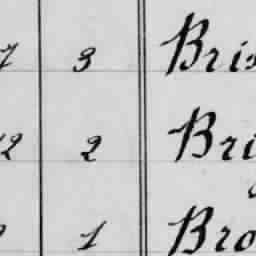 7 3 Bris
12 2 Bri
1 Bro